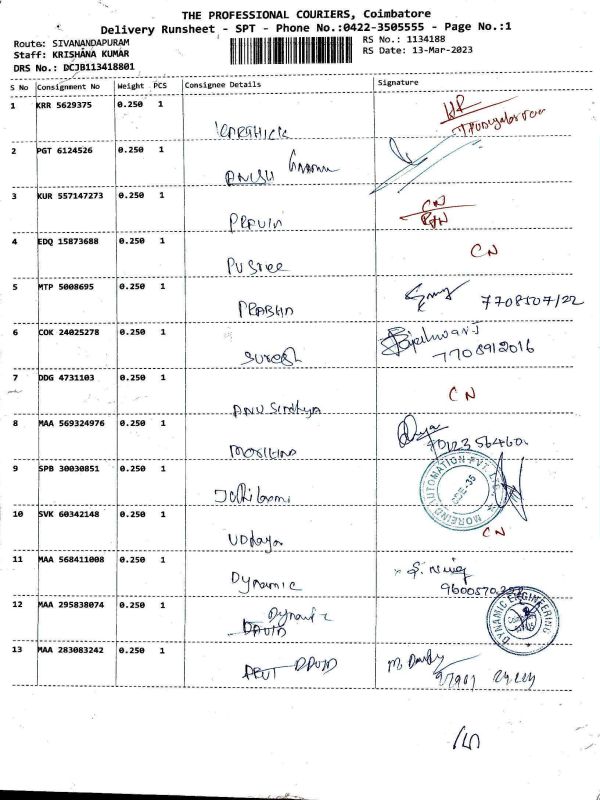 THE PROFESSIONAL COURIERS, Coimbatore
Delivery Runsheet - SPT - Phone No.:0422-3505555 - Page No.:1
Route: SIVANANDAPURAM
Staff: KRISHANA KUMAR
DRS No.: DCJB113418801
RS No.: 1134188
RS Date: 13-Mar-2023
S No Consignment No Weight PCS Consignee Details Signature
1 KRR 5629375 0.250 1
KARTHICK
2 PGT 6124526 0.250 1
ANISH
3 KUR 557147273 0.250 1 CN
PRAVIN
4 EDQ 15873688 0.250 1 CN
PUSree
5 MTP 5008695 0.250 1
PRABHA 7708507122
6 COK 24025278 0.250 1
SURESH 7708912016
7 DDG 4731103 0.250 1 CN
ANU Sindhya
8 MAA 569324976 0.250 1
MOREIND AUTOMATION PVT. LTD.
9 SPB 30030851 0.250 1
10 SVK 60342148 0.250 1 CN
Udaya
11 MAA 568411008 0.250 1
Dynamic
12 MAA 295838074 0.250 1
Dynamic
DAVID
DYNAMIC ENGINEERING
13 MAA 283083242 0.250 1
DAVID